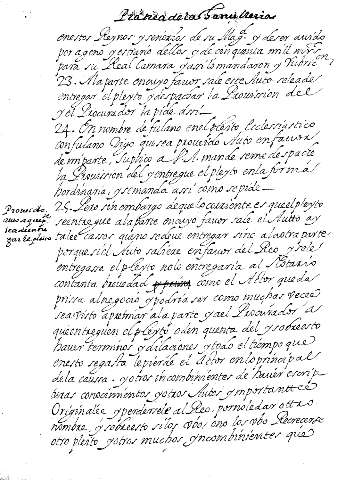 Platica de la Chancilleria
en estos Reynos y señorios de su Mag.d y de ser avido
por ageno y estraño dellos, e de cinquenta mil mrs
para su Real Camara y asi lo mandaron y Rubric.on
23. A la parte en cuyo favor sale este Auto se le a de
entregar el pleyto y despachar la Provission del
y el Procurador la pide assi
24. En nombre de fulano en el pleyto Ecclesiastico
con fulano Digo que sea proveido Auto en favor
de mi parte, Suplico a V.A. mande se me despache
la Provission del y entregue el pleyto en la forma
hordinaria, y se manda assi como se pide
25. Pero sin embargo de que lo corriente es que el pleyto
se entregue a la parte en cuyo favor sale el Auto ay
tales casos que no se deve entregar sino a la otra parte
porque si el Auto saliese en favor del Reo, y se le
entregasse el pleyto no lo entregaria al Notario
con tanta brevedad como el Actor que da
prisa al negocio y podria ser como muchas veces
sea visto apremiar a la parte y a el Procurador a
que entreguen el pleyto o den quenta del y sobre esto
haver terminos y dilaciones y todo el tiempo que
en esto se gasta le pierde el Actor en lo principal
de la caussa, y otros incombinientes de haver escrip-
turas conocimientos y otros Autos y importantes
Originales y perdersele al Reo, por no le dar otro
nombre, y sobre esto si los ubo o no los ubo Recrecerse
otro pleyto y otros muchos yncombinientes que